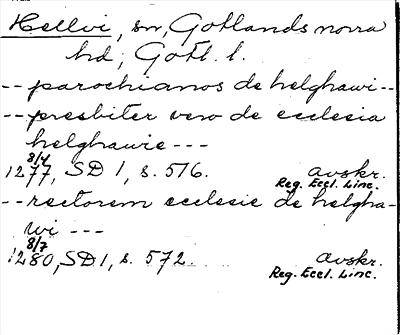 Hellvi, sn, Gotlands norra
hd, Gotl. l.
-- parochianos de helghawi --
-- presbiter vero de ecclesia
helghawie ---
8/4
1277, SD 1, s. 516. avskr.
Reg. Eccl. Linc.
-- rectorem ecclesie de helgha-
wi ---
8/7
1280, SD 1, s. 572. avskr.
Reg. Eccl. Linc.